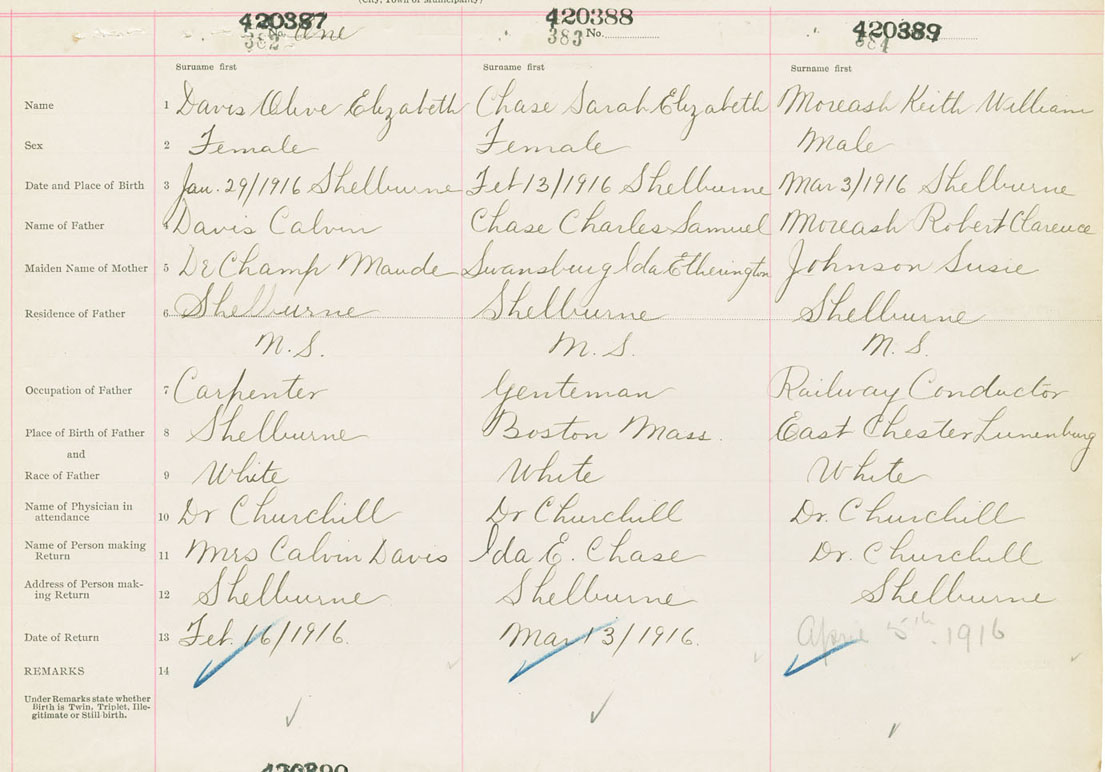 (City, Town or Municipality)
420387 420388 420389
382 No. 383 No. 384
Surname first Surname first Surname first
Name 1 Davis Olive Elizabeth Chase Sarah Elizabeth Moreash Keith William
Sex 2 Female Female Male
Date and Place of Birth 3 Jan. 29/1916 Shelburne Feb 13/1916 Shelburne Mar 3/1916 Shelburne
Name of Father 4 Davis Calvin Chase Charles Samuel Moreash Robert Clarence
Maiden Name of Mother 5 DeChamp Maude Swansburg Ida Etherington Johnson Susie
Residence of Father 6 Shelburne Shelburne Shelburne
N.S. N.S. N.S.
Occupation of Father 7 Carpenter Genteman Railway Conductor
Place of Birth of Father 8 Shelburne Boston Mass. East Chester Lunenburg
and
Race of Father 9 White White White
Name of Physician in
attendance 10 Dr Churchill Dr Churchill Dr. Churchill
Name of Person making
Return 11 Mrs Calvin Davis Ida E. Chase Dr. Churchill
Address of Person mak-
ing Return 12 Shelburne Shelburne Shelburne
Date of Return 13 Feb. 16/1916. Mar 13/1916. April 5th 1916
REMARKS 14
Under Remarks state whether
Birth is Twin, Triplet, Ille-
gitimate or Still birth.
420390